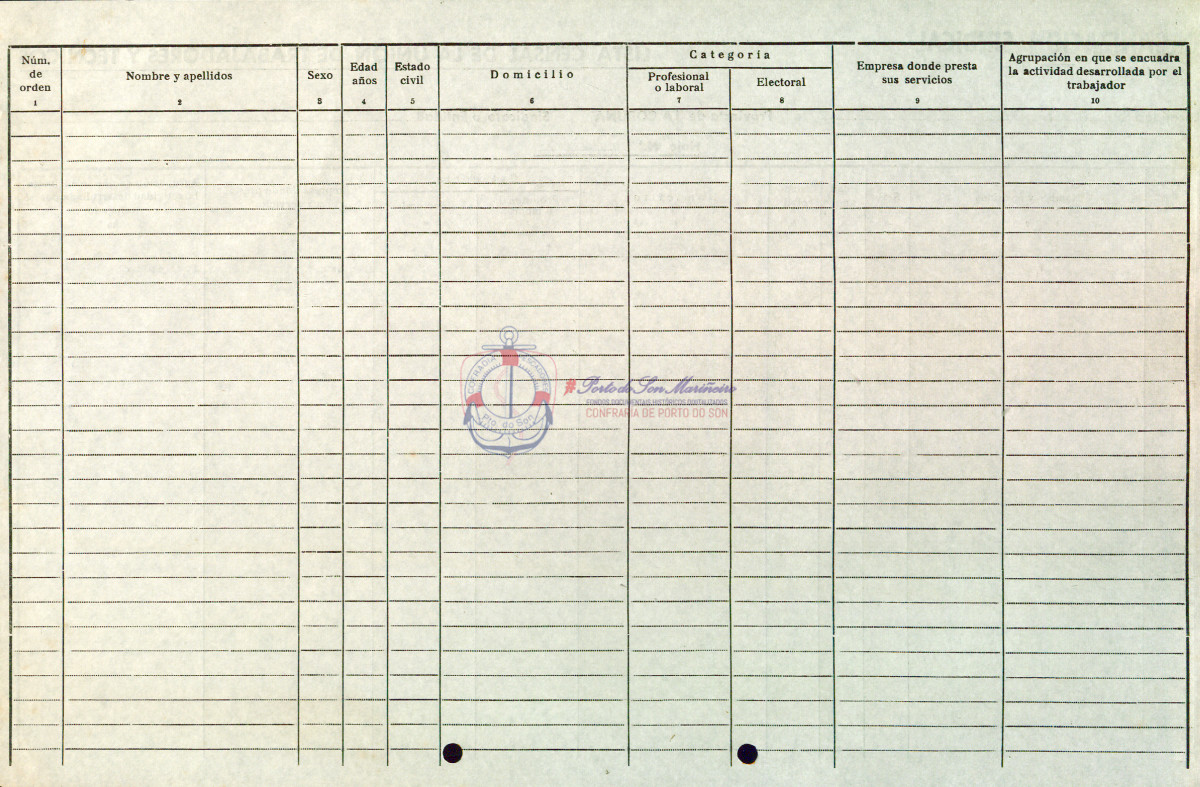 Núm.
de
orden
1
Nombre y apellidos
2
Sexo
3
Edad
años
4
Estado
civil
5
Domicilio
6
Categoría
Profesional
o laboral
7
Electoral
8
Empresa donde presta
sus servicios
9
Agrupación en que se encuadra
la actividad desarrollada por el
trabajador
10
Pto. do Son
# Porto do Son Mariñeiro
FONDOS DOCUMENTAIS HISTÓRICOS DIXITALIZADOS
CONFRARÍA DE PORTO DO SON